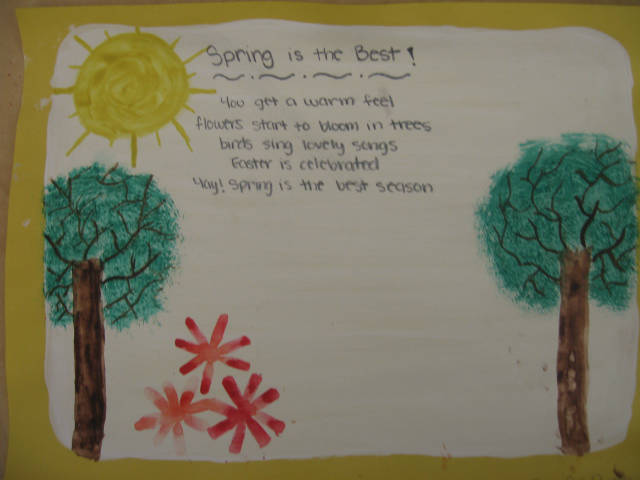 Spring is the Best!
You get a warm feel
flowers start to bloom in trees
birds sing lovely songs
Easter is celebrated
Yay! Spring is the best season